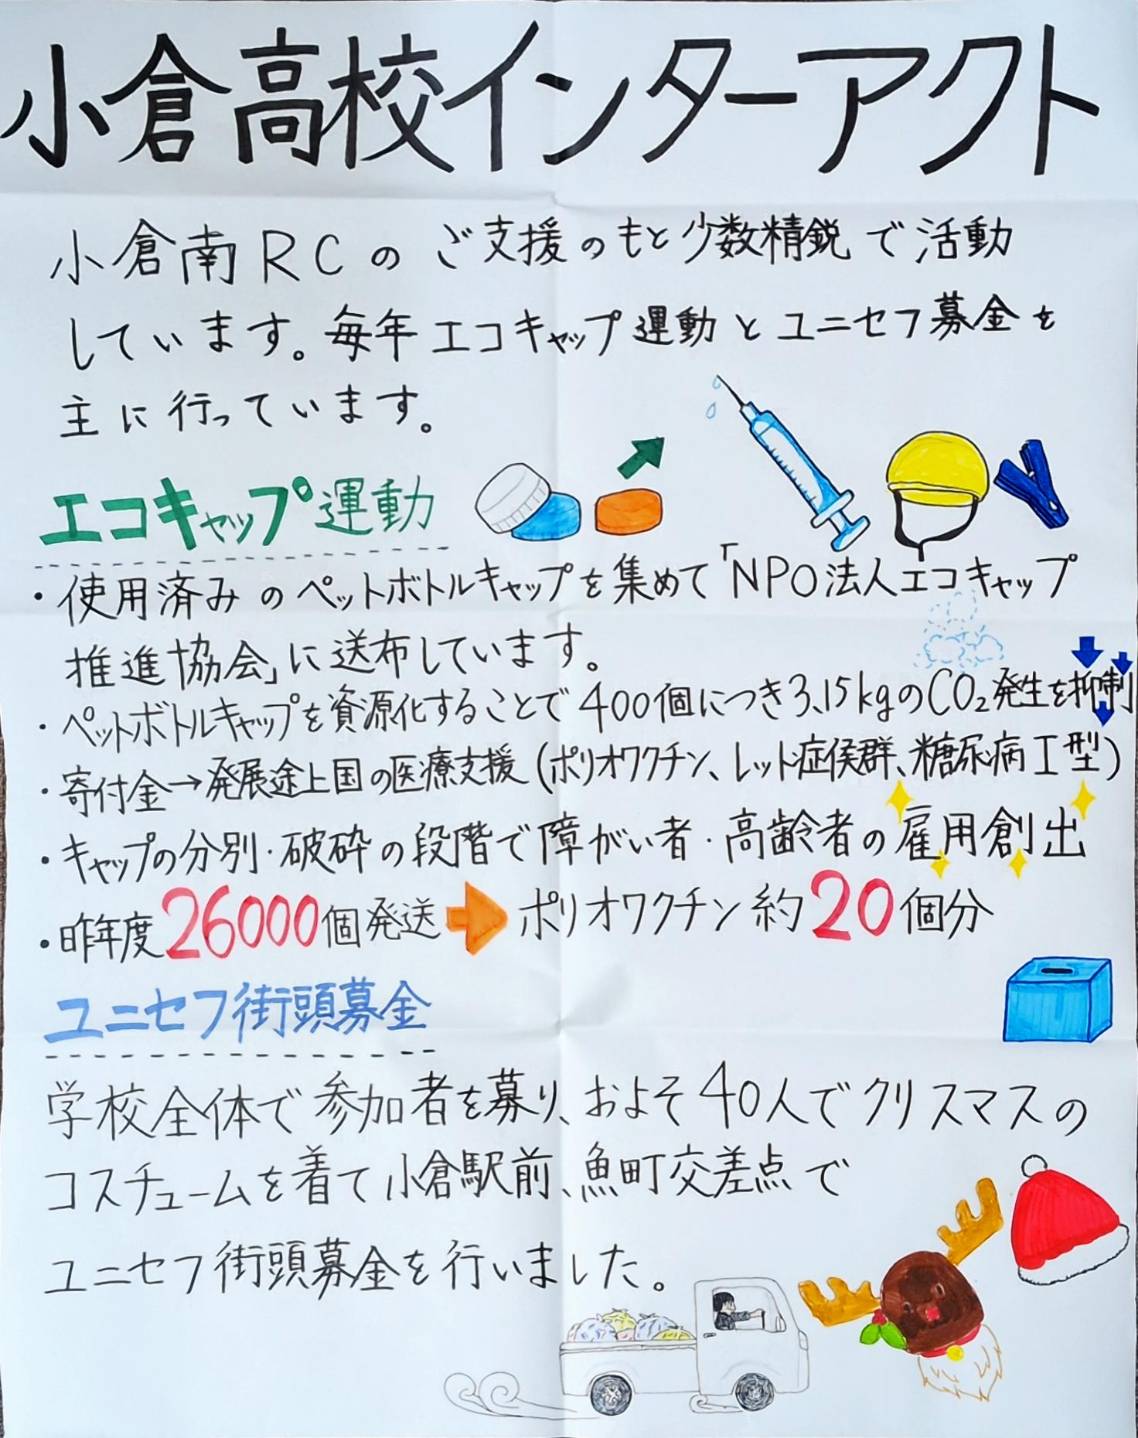 小倉高校インターアクト
小倉南RCのご支援のもと少数精鋭で活動
しています。毎年エコキャップ運動とユニセフ募金を
主に行っています。
エコキャップ運動
・使用済みのペットボトルキャップを集めて「NPO法人エコキャップ
推進協会」に送布しています。
・ペットボトルキャップを資源化することで400個につき3.15kgのCO₂発生を抑制
・寄付金→発展途上国の医療支援(ポリオワクチン、レット症侯群、糖尿病I型)
・キャップの分別・破砕の段階で障がい者・高齢者の雇用創出
・昨年度26000個発送➡ポリオワクチン約20個分
ユニセフ街頭募金
学校全体で参加者を募り、およそ40人でクリスマスの
コスチュームを着て小倉駅前、魚町交差点で
ユニセフ街頭募金を行いました。